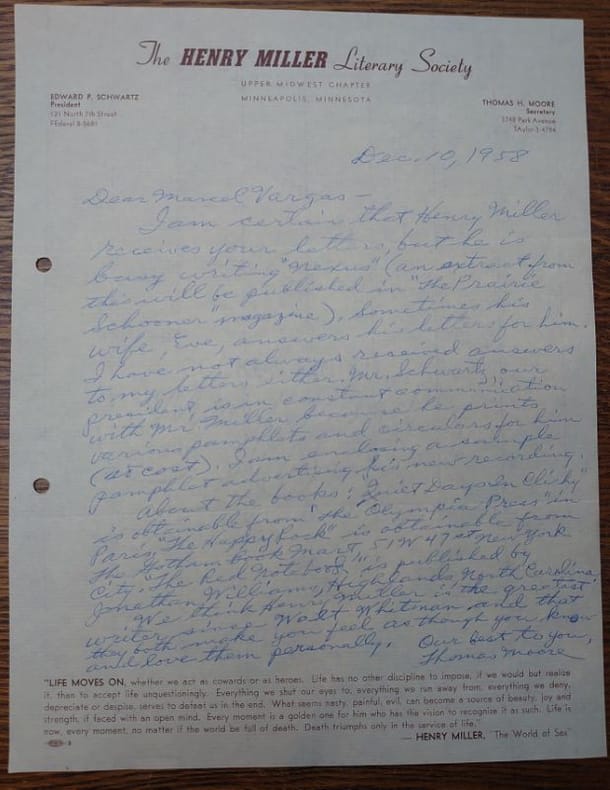 The HENRY MILLER Literary Society
UPPER MIDWEST CHAPTER
MINNEAPOLIS, MINNESOTA
EDWARD P. SCHWARTZ
President
121 North 7th Street
FEderal 8-5681
THOMAS H. MOORE
Secretary
3748 Park Avenue
TAylor 3-4784
Dec. 10, 1958
Dear Marcel Vargas —
I am certain that Henry Miller
receives your letters, but he is
busy writing "Nexus" (an extract from
this will be published in "The Prairie
Schooner" magazine). Sometimes his
wife, Eve, answers his letters for him.
I have not always received answers
to my letters either. Mr. Schwartz, our
president, is in constant communication
with Mr. Miller because he prints
various pamphlets and circulars for him
(at cost). I am enclosing a sample
pamphlet advertising his new recording.
About the books: "Quiet Days In Clichy"
is obtainable from "The Olympia Press" in
Paris, "The Happy Rock" is obtainable from
The Gotham Book Mart, 51 W 47 st New York
City. "The Red Notebook" is published by
Jonathan Williams, Highlands, North Carolina.
We think Henry Miller is the greatest
writer since Walt Whitman and that
they both make you feel as though you know
and love them personally. Our best to you,
Thomas Moore
"LIFE MOVES ON, whether we act as cowards or as heroes. Life has no other discipline to impose, if we would but realize
it, than to accept life unquestioningly. Everything we shut our eyes to, everything we run away from, everything we deny,
depreciate or despise, serves to defeat us in the end. What seems nasty, painful, evil, can become a source of beauty, joy and
strength, if faced with an open mind. Every moment is a golden one for him who has the vision to recognize it as such. Life is
now, every moment, no matter if the world be full of death. Death triumphs only in the service of life."
— HENRY MILLER, "The World of Sex"